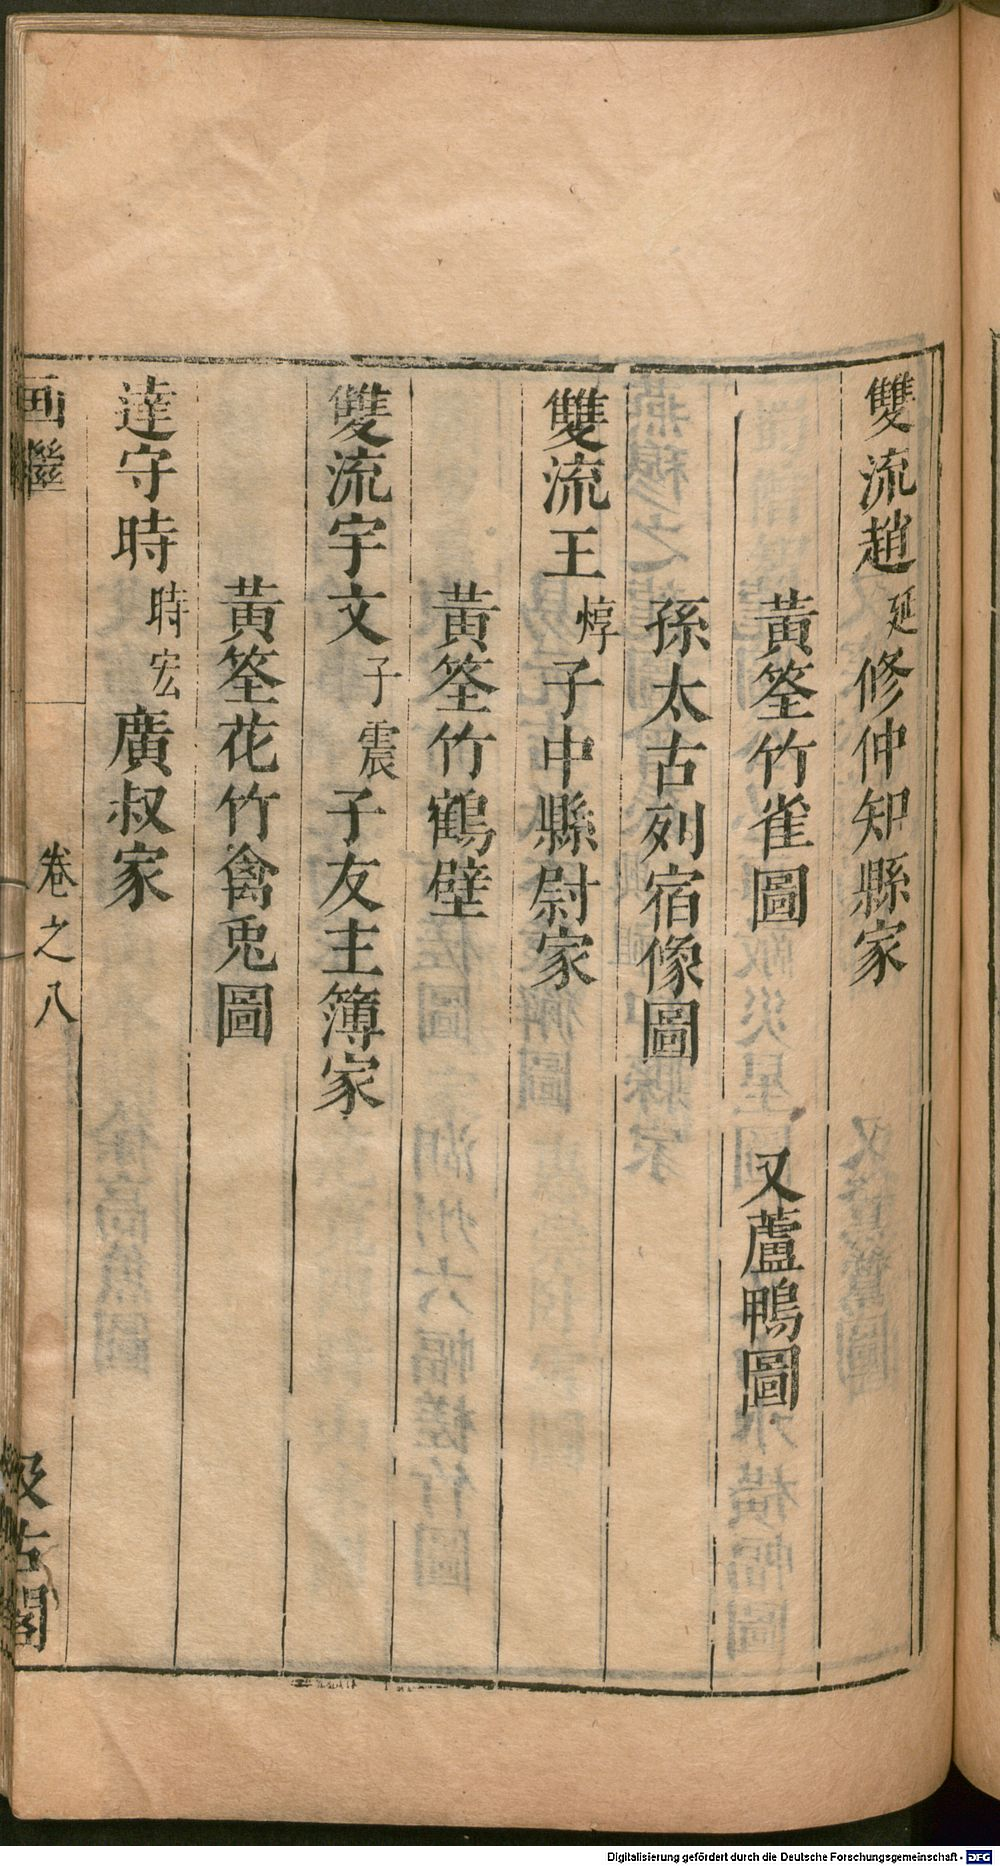 雙流趙延修仲知縣家
黃筌竹雀圖 又蘆鴨圖
孫太古列宿像圖
雙流王㷋子中縣尉家
黃筌竹鶴壁
雙流宇文子震子友主簿家
黃筌花竹禽兎圖
達守時時宏廣叔家
画繼 卷之八 汲古閣
Digitalisierung gefördert durch die Deutsche Forschungsgemeinschaft - DFG